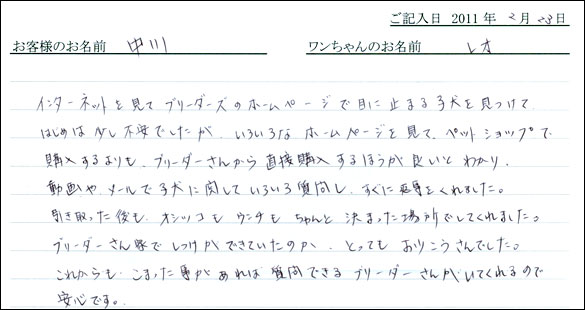 ご記入日 2011年 2月 23日
お客様のお名前 中川 ワンちゃんのお名前 レオ
インターネットを見てブリーダーズのホームページで目に止まる子犬を見つけて
はじめは少し不安でしたが、いろいろなホームページを見て、ペットショップで
購入するよりも、ブリーダーさんから直接購入するほうが良いとわかり、
動画や、メールで子犬に関していろいろ質問し、すぐに返事をくれました。
引き取った後も、オシッコもウンチもちゃんと決まった場所でしてくれました。
ブリーダーさん家でしつけができていたのか、とってもおりこうさんでした。
これからも、こまった事があれば質問できるブリーダーさんがいてくれるので
安心です。